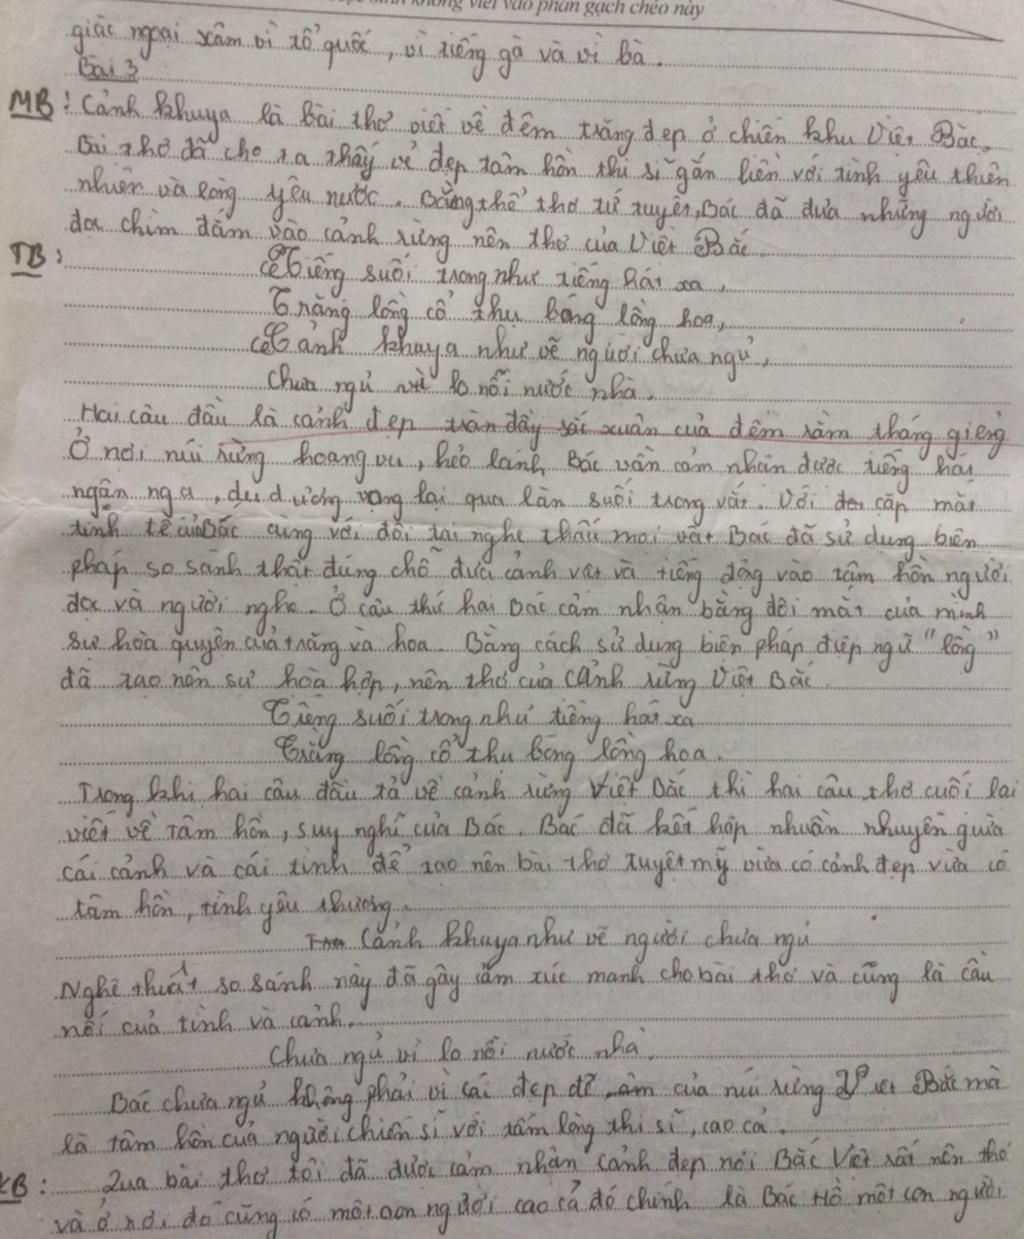 không viết vào phần gạch chéo này
giặc ngoại xâm vì tổ quốc, vì tiếng gà và vì bà.
Bài 3
MB: Cảnh khuya là bài thơ viết về đêm trăng đẹp ở chiến khu Việt Bắc.
Bài thơ đã cho ta thấy vẻ đẹp tâm hồn thi sĩ gắn liền với tình yêu thiên
nhiên và lòng yêu nước. Bằng thể thơ tứ tuyệt, Bác đã đưa những người
đọc chìm đắm vào cảnh rừng nên thơ của Việt Bắc.
TB:
"Tiếng suối trong như tiếng hát xa,
Trăng lồng cổ thụ bóng lồng hoa,
Cảnh khuya như vẽ người chưa ngủ,
Chưa ngủ vì lo nỗi nước nhà.
Hai câu đầu là cảnh đẹp tràn đầy sắc xuân của đêm rằm tháng giêng
Ở nơi núi rừng hoang vu, hẻo lánh Bác vẫn cảm nhận được tiếng hát
ngân nga, du dương vọng lại qua làn suối trong vắt. Với cặp mắt
tinh tế của Bác cùng với đôi tai nghe thấu mọi vật Bác đã sử dụng biện
pháp so sánh thật đúng chỗ đưa cảnh vật và tiếng động vào tâm hồn người
đọc và người nghe. Ở câu thứ hai Bác cảm nhận bằng đôi mắt của mình
sự hòa quyện của trăng và hoa. Bằng cách sử dụng biện pháp điệp ngữ "lồng"
đã tạo nên sự hoà hợp, nên thơ của cảnh rừng Việt Bắc.
Tiếng suối trong như tiếng hát xa
Trăng lồng cổ thụ bóng lồng hoa.
Trong khi hai câu đầu tả về cảnh rừng Việt Bắc thì hai câu thơ cuối lại
viết về tâm hồn, suy nghĩ của Bác. Bác đã kết hợp nhuần nhuyễn giữa
cái cảnh và cái tình để tạo nên bài thơ tuyệt mỹ vừa có cảnh đẹp vừa có
tâm hồn, tình yêu thương.
Cảnh khuya như vẽ người chưa ngủ
Nghệ thuật so sánh này đã gây cảm xúc mạnh cho bài thơ và cũng là cầu
nối của tình và cảnh.
Chưa ngủ vì lo nỗi nước nhà.
Bác chưa ngủ không phải vì cái đẹp đẽ của núi rừng Việt Bắc mà
là tâm hồn của người chiến sĩ với tấm lòng thi sĩ, cao cả.
KB: Qua bài thơ tôi đã được cảm nhận cảnh đẹp nơi Bắc Việt rất nên thơ
và ở nơi đó cũng có một con người cao cả đó chính là Bác Hồ một con người